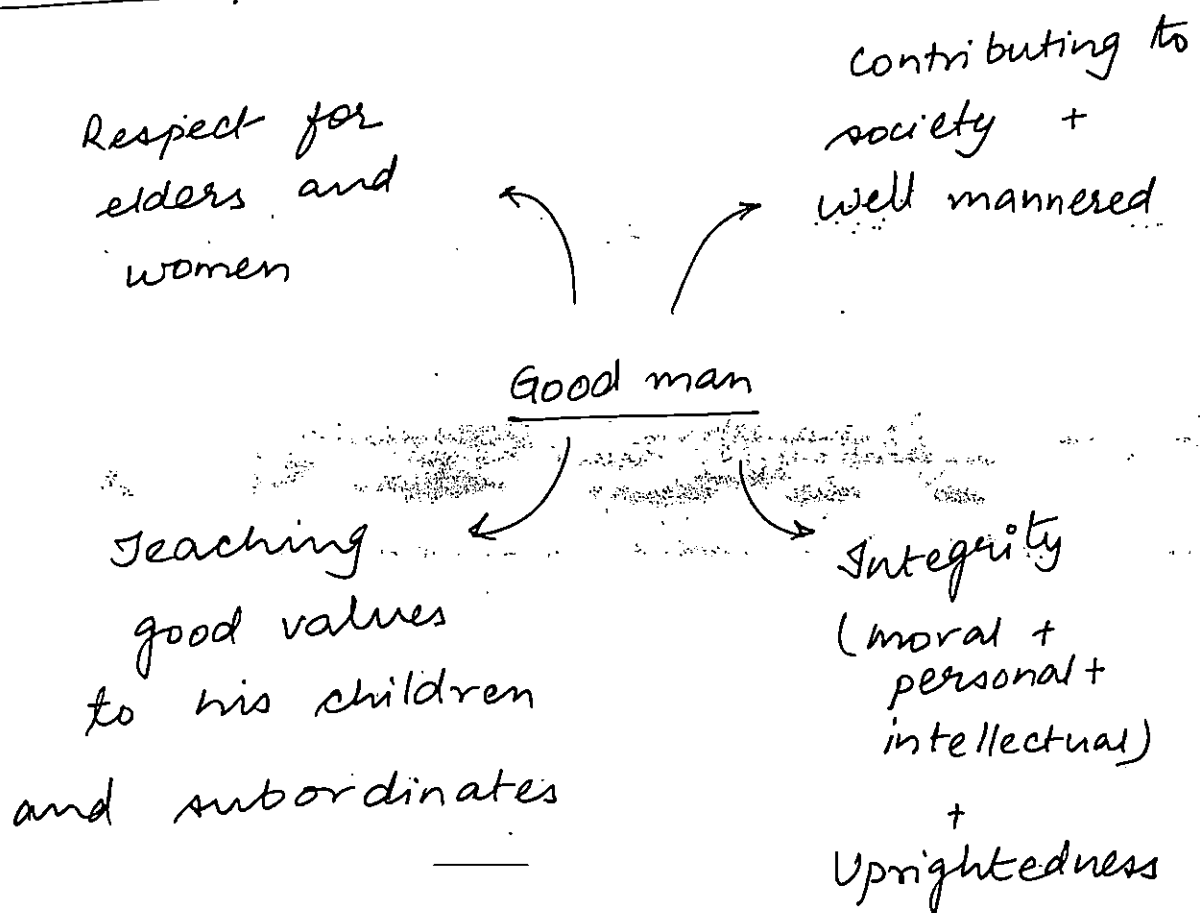 Respect for
elders and
women
Contributing to
society +
well mannered
Good man
Teaching
good values
to his children
and subordinates
Integrity
(moral +
personal +
intellectual)
+
Uprightedness